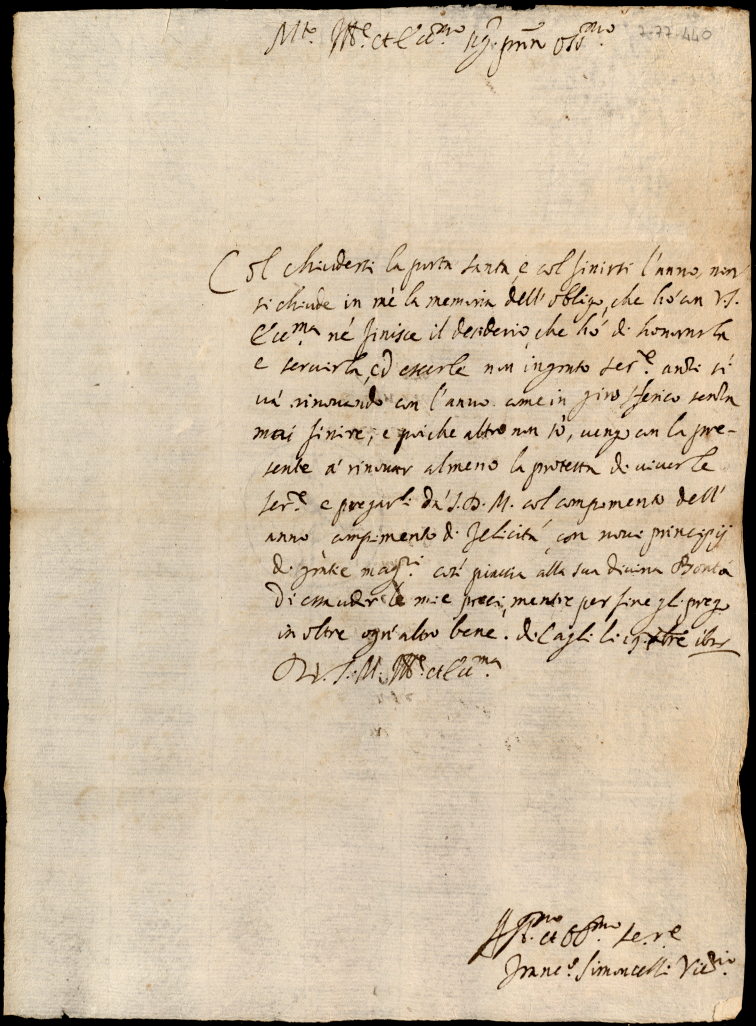 7-77-440
M.to Ill.e et Ecc.mo Sig.r pron oss.mo
Col chiudersi la porta santa, e col finirsi l'anno, non
si chiude in mè la memoria dell'obligo, che hò con V.S.
Ecc.ma né finisce il desiderio, che hò di honorarla
e servirla, ed esserle non ingrato ser.re anzi si
và rinovando con l'anno come in giro sferico senza
mai finire; e poiche altro non sò, vengo con la pre-
sente à rinovar almeno la protesta di viverle
ser.re e pregarli dà S.D.M. col compimento dell'
anno compimento di felicità, con novi principij
di gratie magri. così piaccia alla sua divina Bontà
di essaudir le mie preci, mentre per fine gli prego
in oltre ogn'altro bene. di Cagli li 19
Di V.S. M. Ill.e et Ecc.ma
Aff.mo et Obb.mo Se.r.e
Franc.o Simoncelli Vic.rio